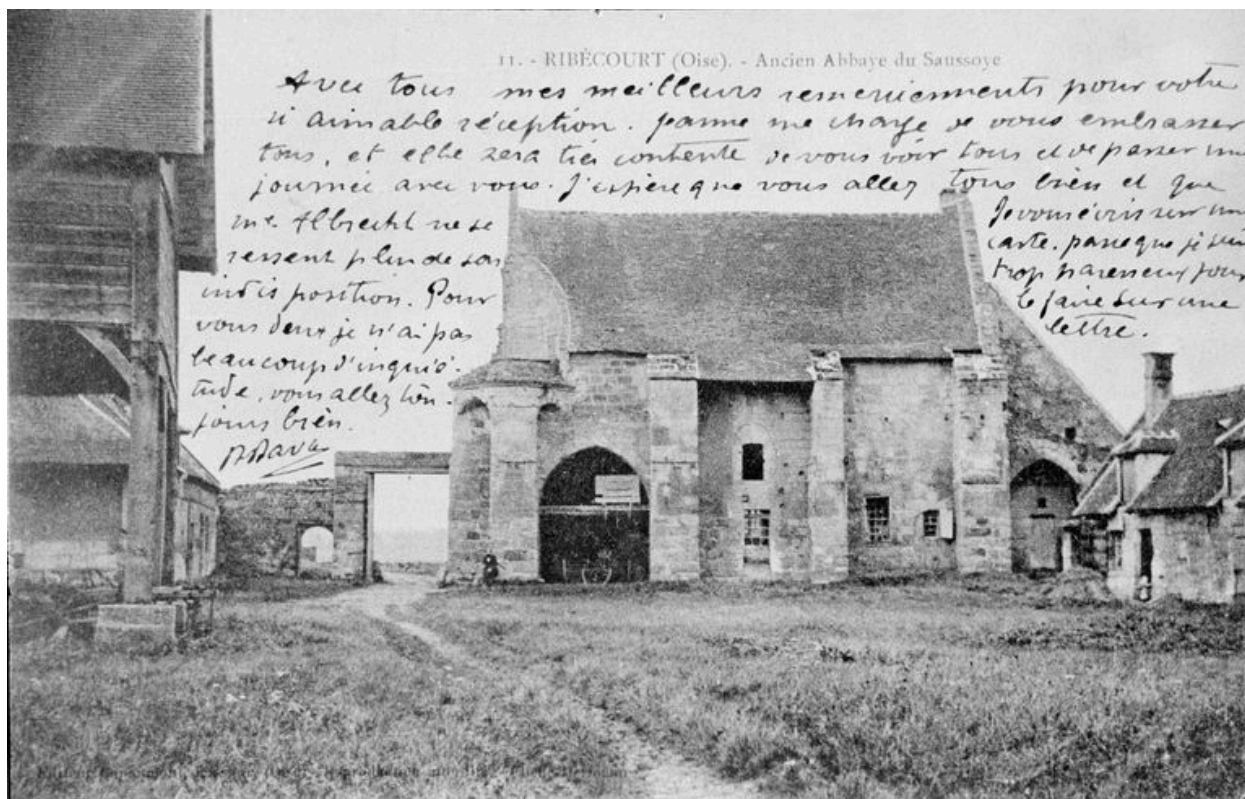 11. - RIBÉCOURT (Oise). - Ancien Abbaye du Saussoye
Avec tous mes meilleurs remerciements pour votre
si aimable réception. Jeanne me charge de vous embrasser
tous, et elle sera très contente de vous voir tous et de passer une
journée avec vous. J'espère que vous allez tous bien et que
Mr. Albrecht ne se
ressent plus de son
indisposition. Pour
vous deux je n'ai pas
beaucoup d'inquié-
tude, vous allez tou-
jours bien.
Je vous écris sur une
carte. parce que je suis
trop paresseux pour
le faire sur une
lettre.